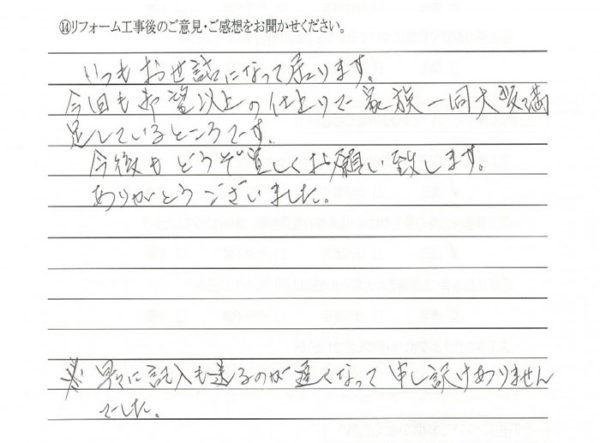 ⑭リフォーム工事後のご意見・ご感想をお聞かせください。
いつもお世話になって居ります。
今回も希望以上の仕上りで家族一同大変満
足しているところです。
今後もどうぞ宜しくお願い致します。
ありがとうございました。
※ 早々に記入も送るのが遅くなって申し訳けありません
でした。